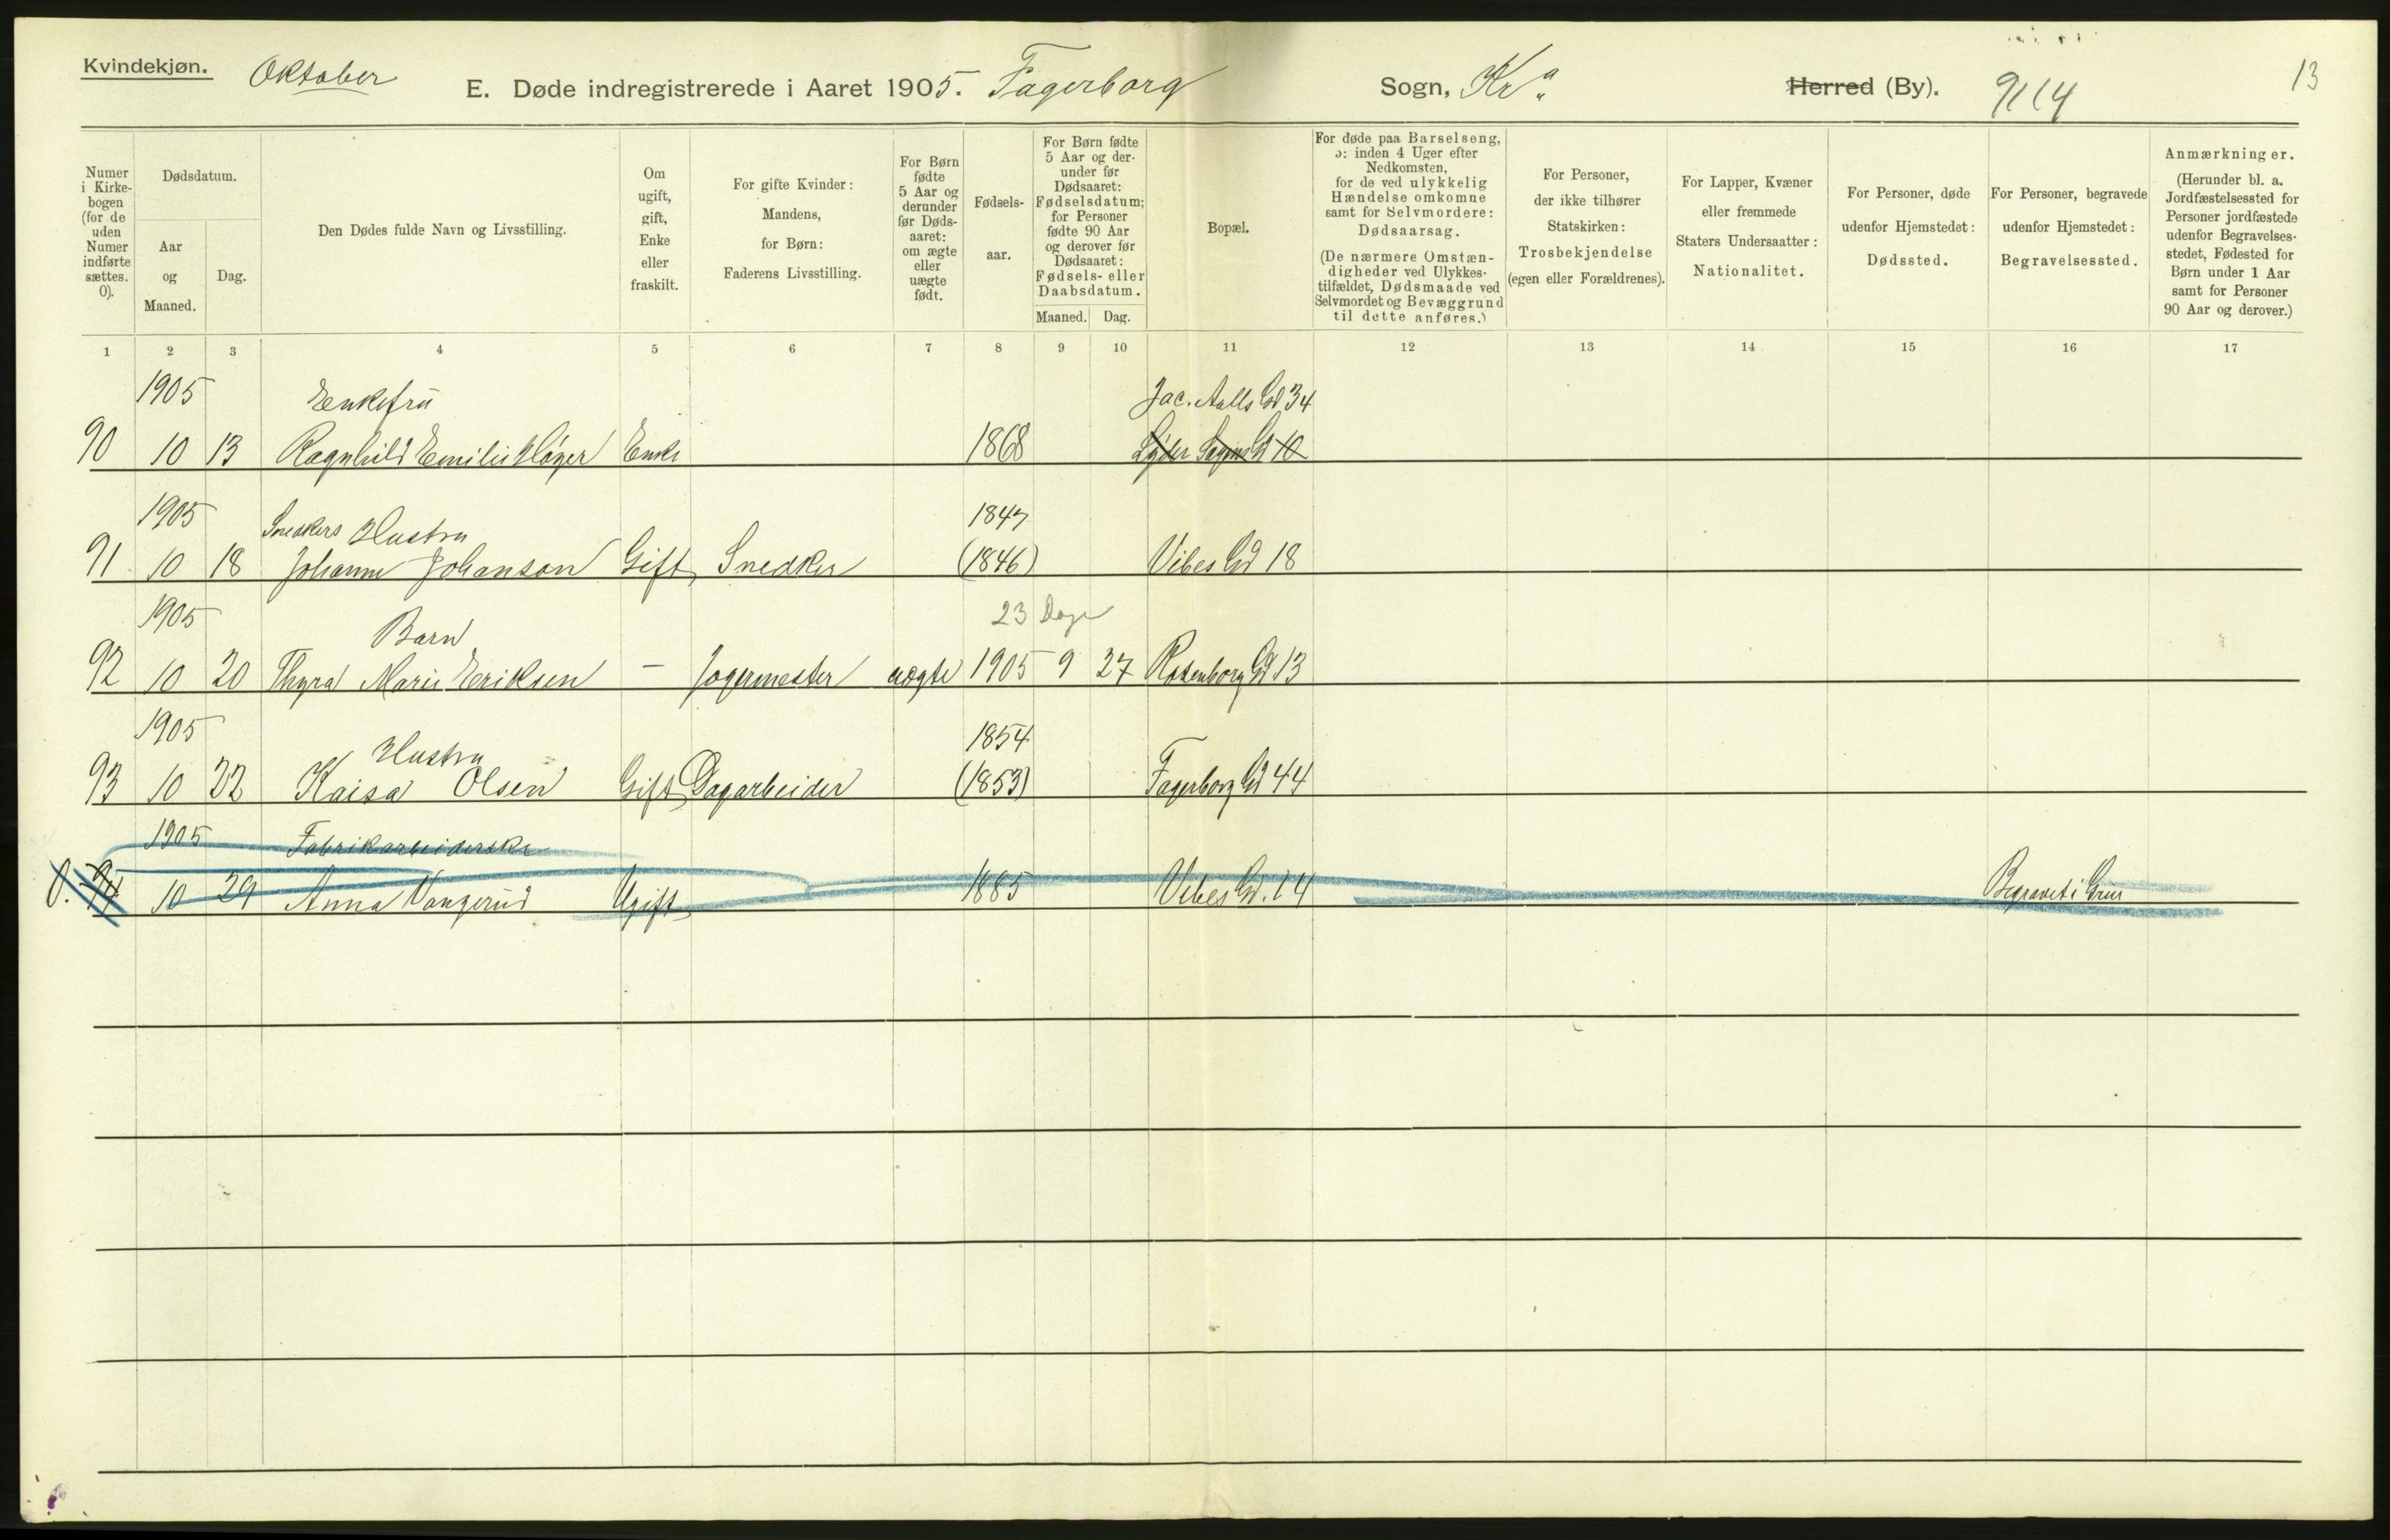 Kvindekjøn. Oktober
E. Døde indregistrerede i Aaret 1905. Fagerborg Sogn, Kra. Herred (By). 13
Numer i Kirkebogen (for de uden Numer indførte sættes. 0).
Dødsdatum.
Aar og Maaned.
Dag.
Den Dødes fulde Navn og Livsstilling.
Om ugift, gift, Enke eller fraskilt.
For gifte Kvinder: Mandens, for Børn: Faderens Livsstilling.
For Børn fødte 5 Aar og derunder før Døds-aaret: om ægte eller uægte født.
Fødsels-aar.
For Børn fødte 5 Aar og der-under før Dødsaaret: Fødselsdatum; for Personer fødte 90 Aar og derover før Dødsaaret: Fødsels- eller Daabsdatum.
Maaned. Dag.
Bopæl.
For døde paa Barselseng, ɔ: inden 4 Uger efter Nedkomsten, for de ved ulykkelig Hændelse omkomne samt for Selvmordere: Dødsaarsag.
(De nærmere Omstæn-digheder ved Ulykkes-tilfældet, Dødsmaade ved Selvmordet og Bevæggrund til dette anføres.)
For Personer, der ikke tilhører Statskirken: Trosbekjendelse (egen eller Forældrenes).
For Lapper, Kvæner eller fremmede Staters Undersaatter: Nationalitet.
For Personer, døde udenfor Hjemstedet: Dødssted.
For Personer, begravede udenfor Hjemstedet: Begravelsessted.
Anmærkninger.
(Herunder bl. a. Jordfæstelsessted for Personer jordfæstede udenfor Begravelses-stedet, Fødested for Børn under 1 Aar samt for Personer 90 Aar og derover.)
1 2 3 4 5 6 7 8 9 10 11 12 13 14 15 16 17
1905 Enkefru Jac. Aalls Gd 34
90 10 13 Ragnhild Emilie Høyer Enke 1868 Lyder Sagens Gd 10
1905 Snedkers Hustru 1847
91 10 18 Johanne Johanson Gift Snedker (1846) Vibes Gd 18
1905 Barn 23 Dage
92 10 20 Thyra Marie Eriksen - Jogermester uægte 1905 9 27 Rosenborg Gd 13
1905 Hustru 1854
93 10 22 Kaisa Olsen Gift Dagarbeider (1853) Fagerborg Gd 44
1905 Fabrikarbeiderske
0. 94 10 29 Anna Vangerud Ugift 1885 Vibes Gd. 14 Begravet i Grue